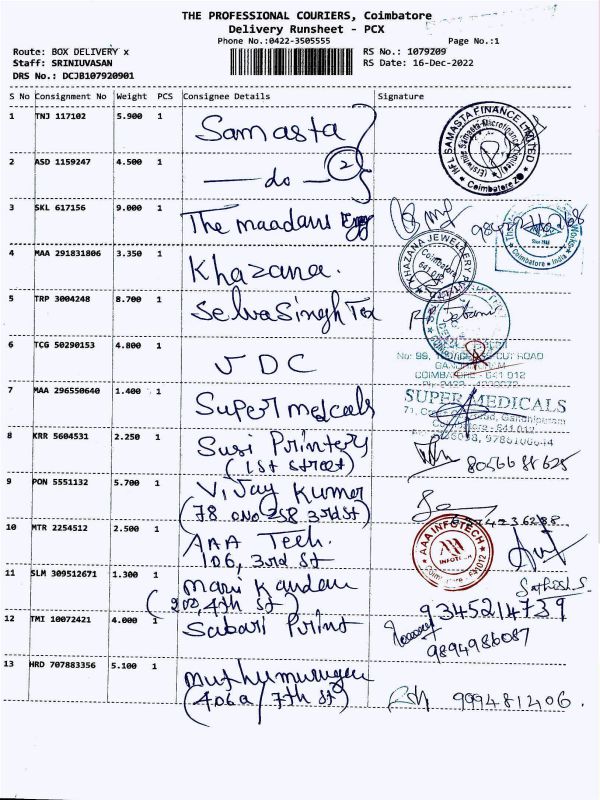 THE PROFESSIONAL COURIERS, Coimbatore
Delivery Runsheet - PCX
Phone No.:0422-3505555
Page No.:1
Route: BOX DELIVERY x
RS No.: 1079Z09
Staff: SRINIUVASAN
RS Date: 16-Dec-2022
DRS No.: DCJB107920901
S No Consignment No Weight PCS Consignee Details Signature
1 TNJ 117102 5.900 1 Samasta
SAMASTA FINANCE LIMITED
Coimbatore
2 ASD 1159247 4.500 1 — do — 2
3 SKL 617156 9.000 1 The maadans Engg
Coimbatore - India
4 MAA 291831806 3.350 1 Khazana.
KHAZANA JEWELLERY PVT LTD
Coimbatore
641 012
5 TRP 3004248 8.700 1 Selva Singh Tex
6 TCG 50290153 4.800 1 JDC
COIMBATORE - 641 012
7 MAA 296550640 1.400 1 Super medcals
SUPER MEDICALS
8 KRR 5604531 2.250 1 Susi Printers
(1st street)
8056686625
9 PON 5551132 5.700 1 Vijay Kumar
(78 ONO 258 3rd St)
10 MTR 2254512 2.500 1 AAA Tech.
106, 3rd St
AAA INFOTECH
AAA
INFOTECH
11 SLM 309512671 1.300 1 Mani Kandan
(202, 4th St)
Sathish.S.
9345214739
12 TMI 10072421 4.000 1 Sabari Print
9894986087
13 HRD 707883356 5.100 1 Muthumurugan
(406a / 7th St)
9994812406.